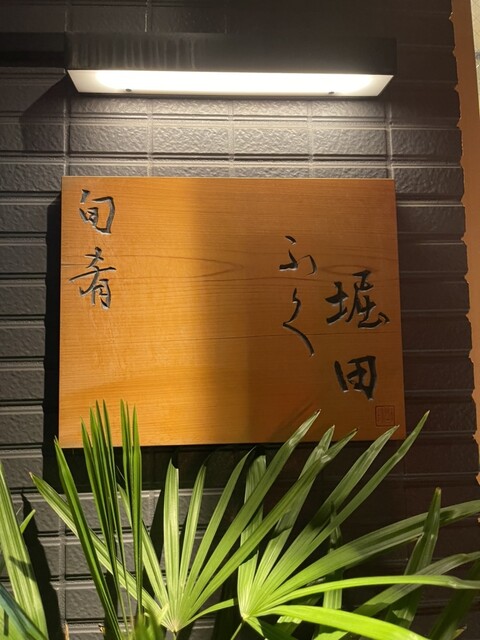 堀田
ふく
旬肴